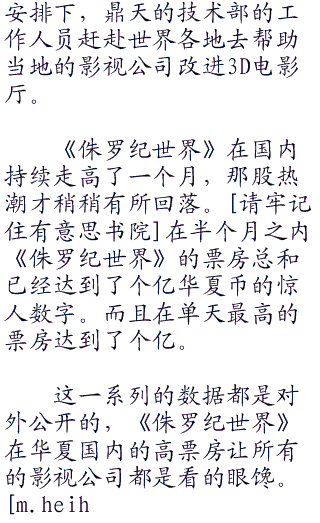 安排下，鼎天的技术部的工
作人员赶赴世界各地去帮助
当地的影视公司改进3D电影
厅。
《侏罗纪世界》在国内
持续走高了一个月，那股热
潮才稍稍有所回落。[请牢记
住有意思书院]在半个月之内
《侏罗纪世界》的票房总和
已经达到了个亿华夏币的惊
人数字。而且在单天最高的
票房达到了个亿。
这一系列的数据都是对
外公开的，《侏罗纪世界》
在华夏国内的高票房让所有
的影视公司都是看的眼馋。
[m.heih